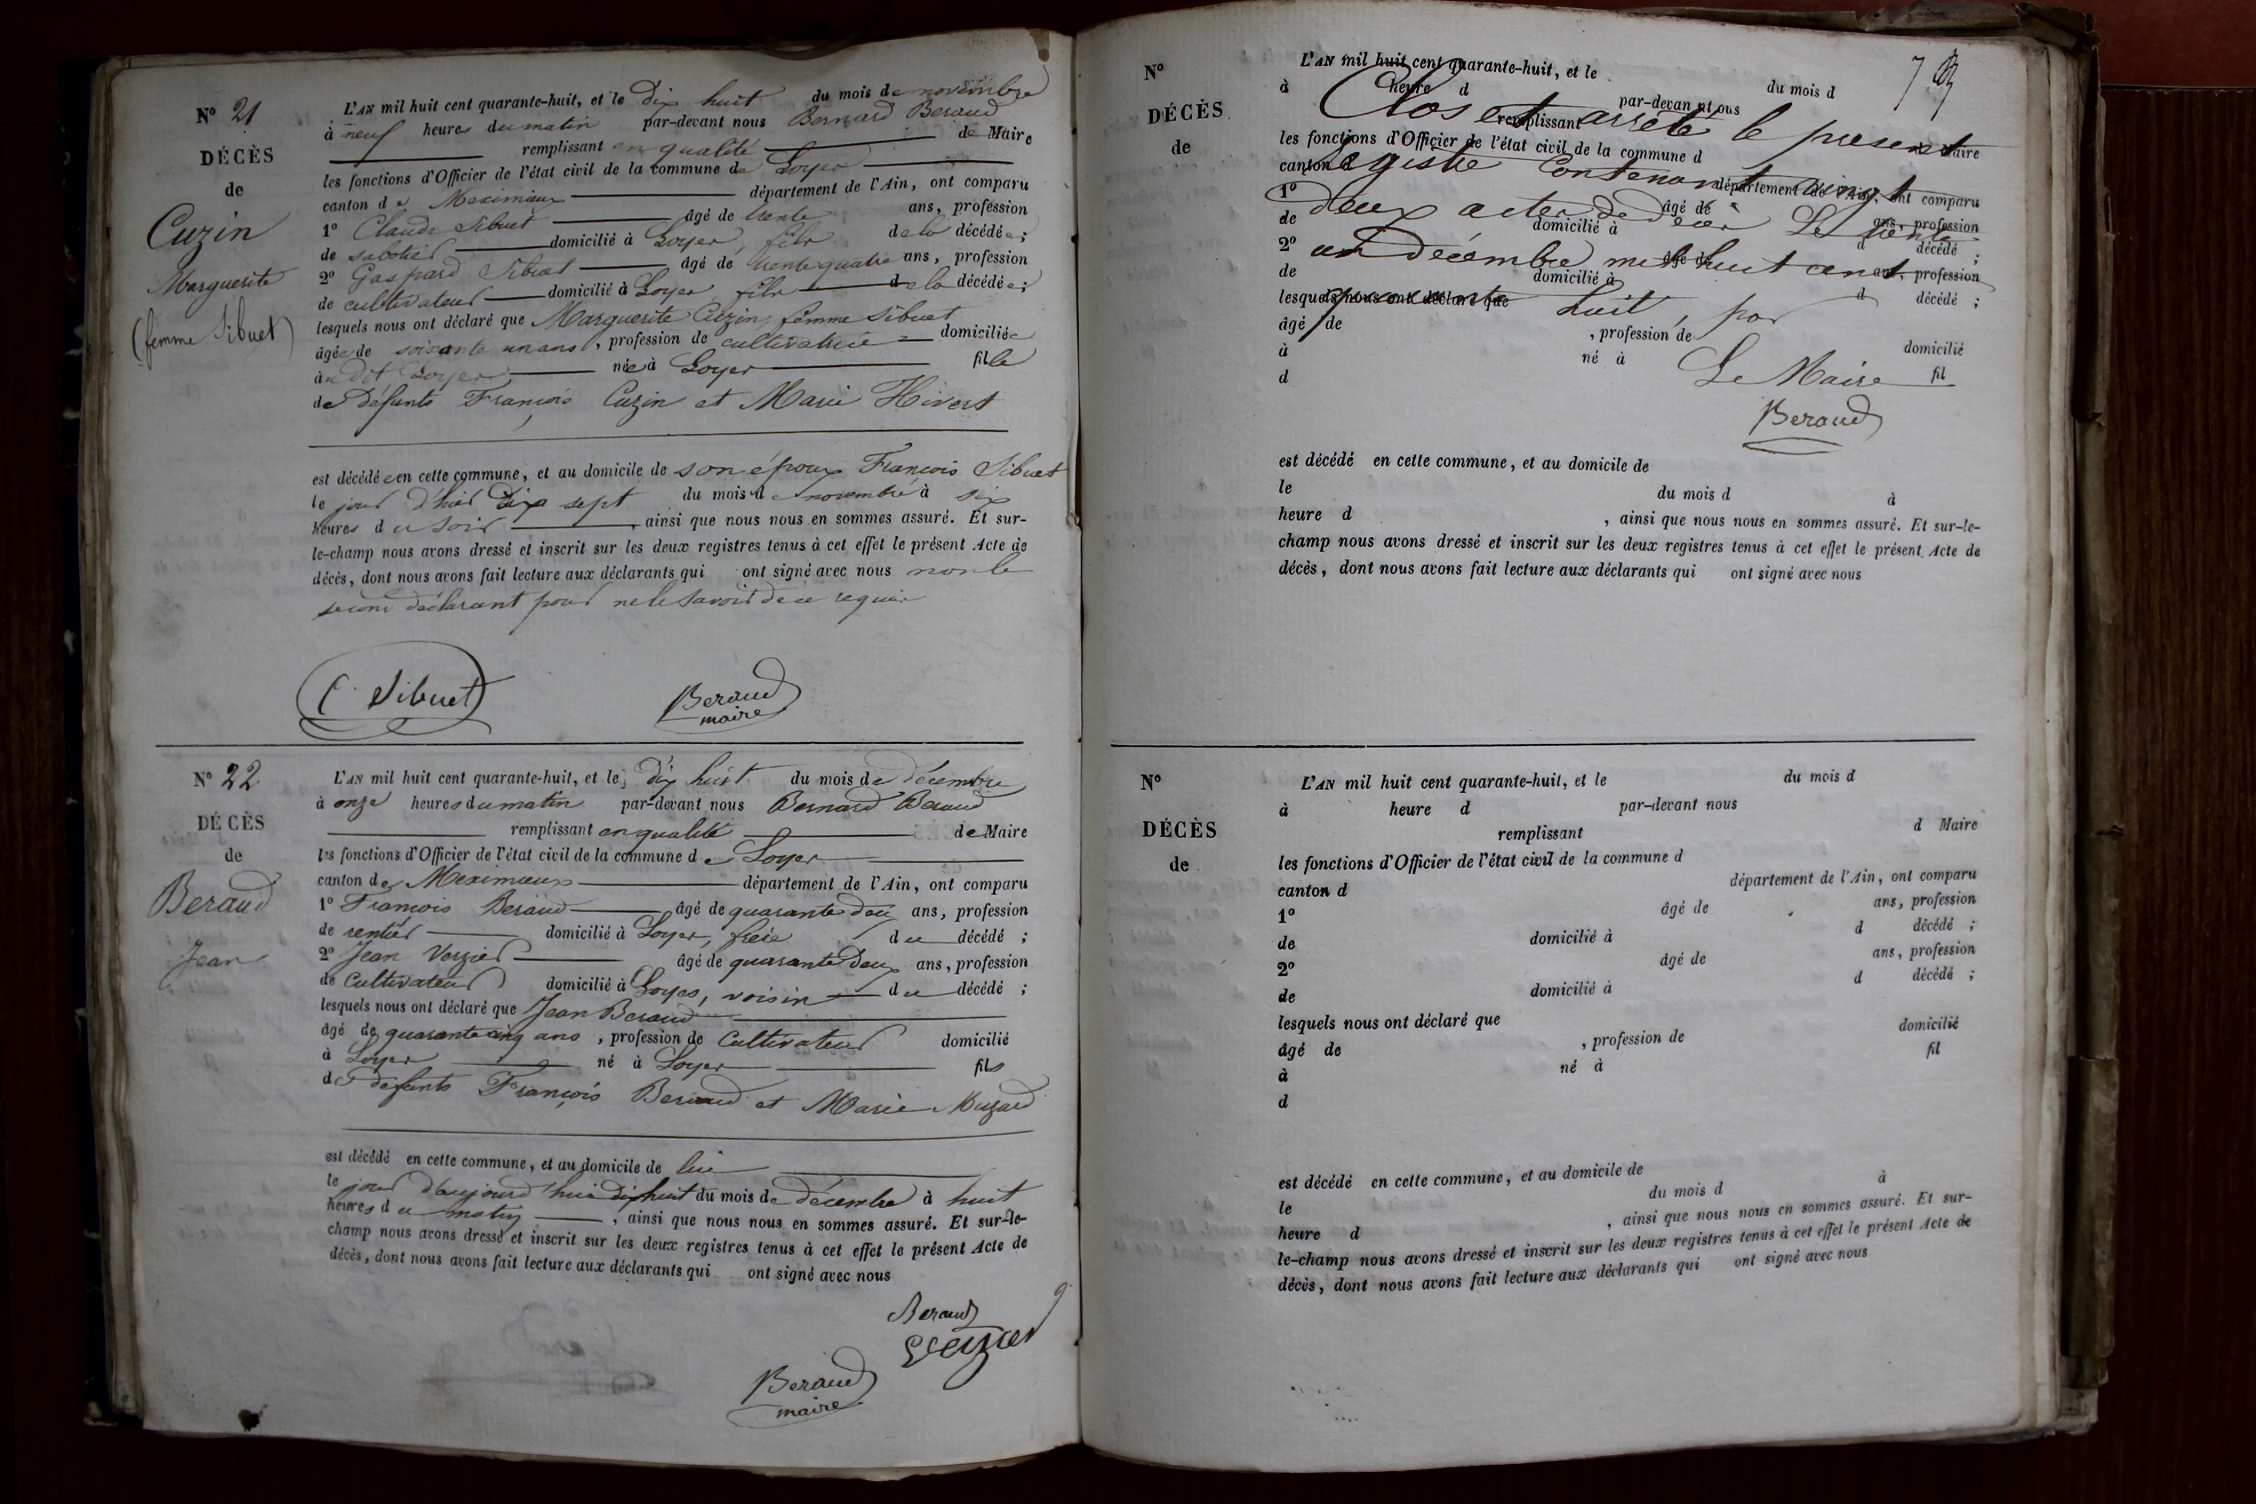 N° 21
DÉCÈS
de
Cuzin
Marguerite
(femme Sibuet)
L'AN mil huit cent quarante-huit, et le dix huit du mois de novembre
à neuf heures du matin par-devant nous Bernard Beraud
remplissant en qualité de Maire
les fonctions d'Officier de l'état civil de la commune de Loyes
canton de Meximieux département de l'Ain, ont comparu
1° Claude Sibuet âgé de trente ans, profession
de sabotier domicilié à Loyes, fils de la décédée;
2° Gaspard Sibuet âgé de trente quatre ans, profession
de cultivateur domicilié à Loyes fils de la décédée;
lesquels nous ont déclaré que Marguerite Cuzin femme Sibuet
âgée de soixante un ans, profession de cultivatrice domiciliée
au dit Loyes née à Loyes fille
des défunts François Cuzin et Marie Hivert
est décédée en cette commune, et au domicile de son époux François Sibuet
le jour d'hier dix sept du mois de novembre à six
heures du soir, ainsi que nous nous en sommes assuré. Et sur-
le-champ nous avons dressé et inscrit sur les deux registres tenus à cet effet le présent Acte de
décès, dont nous avons fait lecture aux déclarants qui ont signé avec nous non le
second déclarant pour ne le savoir de ce requis
C. Sibuet
Beraud
maire
N° 22
DÉCÈS
de
Beraud
Jean
L'AN mil huit cent quarante-huit, et le dix huit du mois de décembre
à onze heures du matin par-devant nous Bernard Beraud
remplissant en qualité de Maire
les fonctions d'Officier de l'état civil de la commune de Loyes
canton de Meximieux département de l'Ain, ont comparu
1° François Beraud âgé de quarante deux ans, profession
de rentier domicilié à Loyes, frère du décédé;
2° Jean Verzier âgé de quarante deux ans, profession
de Cultivateur domicilié à Loyes, voisin du décédé;
lesquels nous ont déclaré que Jean Beraud
âgé de quarante cinq ans, profession de Cultivateur domicilié
à Loyes né à Loyes fils
des défunts François Beraud et Marie Muzard
est décédé en cette commune, et au domicile de lui
le jour d'aujourd'hui dix huit du mois de décembre à huit
heures du matin, ainsi que nous nous en sommes assuré. Et sur-le-
champ nous avons dressé et inscrit sur les deux registres tenus à cet effet le présent Acte de
décès, dont nous avons fait lecture aux déclarants qui ont signé avec nous
Beraud
Verzier
Beraud
maire
N°
DÉCÈS
de
L'AN mil huit cent quarante-huit, et le du mois d
à heure d par-devant nous
remplissant d Maire
les fonctions d'Officier de l'état civil de la commune d
canton d département de l'Ain, ont comparu
1° âgé de ans, profession
de domicilié à d décédé;
2° âgé de ans, profession
de domicilié à d décédé;
lesquels nous ont déclaré que
âgé de, profession de domicilié
à né à fil
d
Clos et arrêté le présent
registre Contenant vingt
deux actes de décès Le trente
un Décembre mil huit cent
quarante huit, par
Le Maire
Beraud
est décédé en cette commune, et au domicile de
le du mois d à
heure d, ainsi que nous nous en sommes assuré. Et sur-le-
champ nous avons dressé et inscrit sur les deux registres tenus à cet effet le présent Acte de
décès, dont nous avons fait lecture aux déclarants qui ont signé avec nous
N°
DÉCÈS
de
L'AN mil huit cent quarante-huit, et le du mois d
à heure d par-devant nous
remplissant d Maire
les fonctions d'Officier de l'état civil de la commune d
canton d département de l'Ain, ont comparu
1° âgé de ans, profession
de domicilié à d décédé;
2° âgé de ans, profession
de domicilié à d décédé;
lesquels nous ont déclaré que
âgé de, profession de domicilié
à né à fil
d
est décédé en cette commune, et au domicile de
le du mois d à
heure d, ainsi que nous nous en sommes assuré. Et sur-
le-champ nous avons dressé et inscrit sur les deux registres tenus à cet effet le présent Acte de
décès, dont nous avons fait lecture aux déclarants qui ont signé avec nous